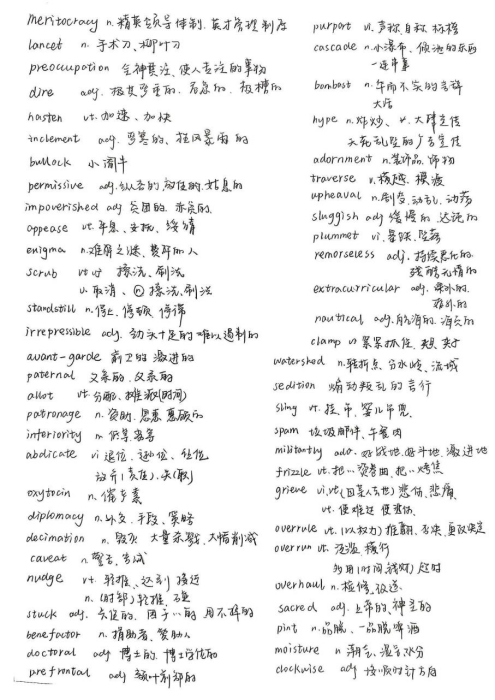 meritocracy n. 精英领导体制、英才管理制度
lancet n. 手术刀、柳叶刀
preoccupation 全神贯注、使人专注的事物
dire adj. 极其严重的、危急的、极糟的
hasten vt. 加速、加快
inclement adj. 严寒的、狂风暴雨的
bullock 小阉牛
permissive adj. 纵容的 放任的、姑息的
impoverished adj 贫困的、赤贫的
appease vt. 平息、安抚、绥靖
enigma n. 难解之谜、费解的人
scrub vt vi 擦洗、刷洗
v. 取消、n 擦洗、刷洗
standstill n. 停止、停顿、停滞
irrepressible adj. 劲头十足的 难以遏制的
avant-garde 前卫的 激进的
paternal 父亲的、父系的
allot vt. 分配、摊派(时间)
patronage n. 资助、恩惠 惠顾的
inferiority n. 低等 劣等
abdicate vi 退位、逊位、让位
放弃(责任)、失(职)
oxytocin n. 催产素
diplomacy n. 外交、手段、策略
decimation n. 毁灭 大量杀戮、大幅削减
caveat n. 警告、告诫
nudge vt. 轻推、达到 接近
n. (肘部)轻推、碰
stuck adj. 卡住的、困于…的 甩不掉的
benefactor n. 捐助者、赞助人
doctoral adj 博士的、博士学位的
prefrontal adj 额叶前部的
purport vi. 声称、自称、标榜
cascade n. 小瀑布、倾泻的东西
一连串
bombast n. 华而不实的言辞
大话
hype n. 炒作、v. 大肆宣传
天花乱坠的广告宣传
adornment n. 装饰品、饰物
traverse v. 横越、横渡
upheaval n. 剧变、动乱、动荡
sluggish adj 缓慢的、迟钝的
plummet vi. 暴跌、坠落
remorseless adj. 持续恶化的、
残酷无情的
extracurricular adj. 课外的、
校外的
nautical adj. 航海的、海员的
clamp v 紧紧抓住、夹 夹子
watershed n. 转折点、分水岭、流域
sedition 煽动叛乱的言行
sling vt. 挂、吊、婴儿吊兜
spam 垃圾邮件、午餐肉
militantly adv. 好战地、好斗地、激进地
frizzle vt. 把…烫卷曲、把…烤焦
grieve vi. vt. (因某人去世) 悲伤、悲痛
vt. 使难过 使悲伤
overrule vt. (以权力) 推翻、否决、更改决定
overrun vt. 泛滥、横行
多用(时间、钱财) 超时
overhaul n. 检修、改造
sacred adj. 上帝的、神圣的
pint n. 品脱、一品脱啤酒
moisture n 潮气、湿气 水分
clockwise adj 按顺时针方向